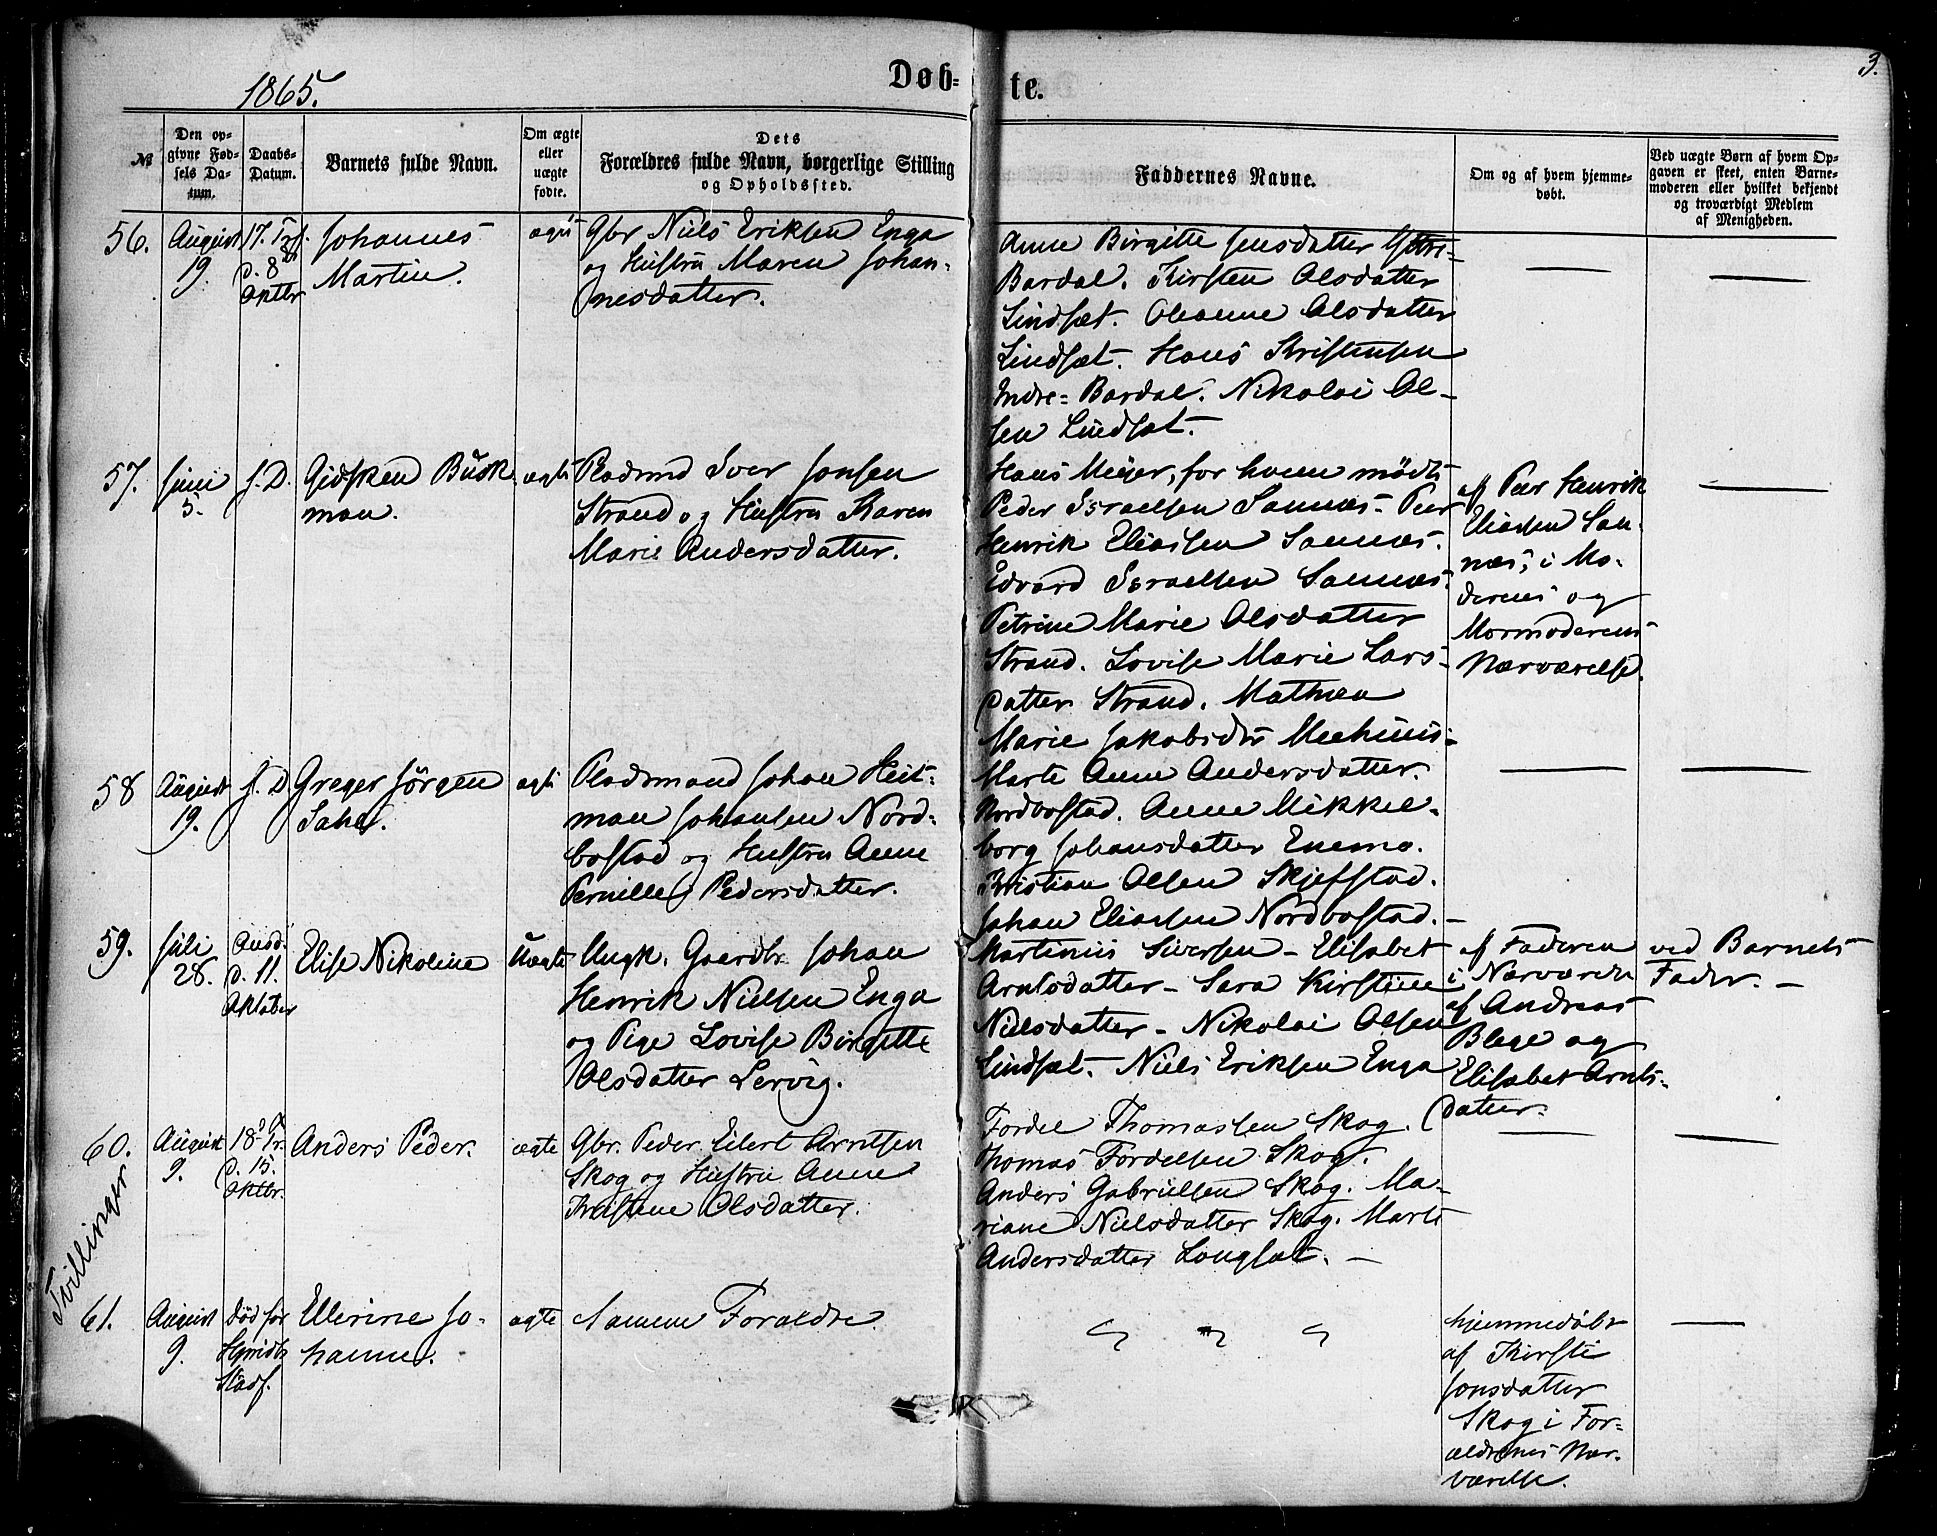 3.
1865.
Døb-
te.
№
Den op-
givne Fød-
sels Da-
tum.
Daabs-
Datum.
Barnets fulde Navn.
Om ægte
eller
uægte
fødte.
Dets
Forældres fulde Navn, borgerlige Stilling
og Opholdssted.
Faddernes Navne.
Om og af hvem hjemme-
døbt.
Ved uægte Børn af hvem Op-
gaven er skeet, enten Barne-
moderen eller hvilket bekjendt
og troværdigt Medlem
af Menigheden.
56.
August
19.
17. Tr.
d. 8de
Oktbr
Johannes
Martin.
ægte
Gbr Niels Eriksen Enga
og Hustru Maren Johan-
nesdatter.
Anne Birgitte Jensdatter Ystre-
Bardal. Kirsten Olsdatter
Lindsæt. Oleanne Olsdatter
Lindsæt. Hans Kristensen
Indre-Bardal. Nikolai Ol-
sen Lindsæt.
57.
Juni
5.
s. D.
Gidsken Buck-
man.
ægte
Pladsmd Iver Jonsen
Strand og Hustru Karen
Marie Andersdatter.
Hans Meyer, for hvem mødte
Peder Israelsen Sannæs - Peer
Henrik Eliassen Sannæs.
Edvard Israelsen Sannæs.
Petrine Marie Olsdatter
Strand. Lovise Marie Lars-
datter Strand. Mathea
Marie Jakobsdtr
af Peer Henrik
Eliassen San-
næs, i Mo-
derens og
Mormoderens
Nærværelse.
58
August
19.
s. D.
Greger Jørgen
ægte
Pladsmand Johan Heit-
man Johansen Nord-
bostad og Hustru Anne
Pernille Pedersdatter.
Marte Anne Andersdatter.
Nordbostad. Anne Mikkel-
borg Johansdatter Enemo.
Kristian Olsen Skjefstad.
Johan Eliassen Nordbostad.-
59.
Juli
28.
d. 11.
Oktober
Elise Nikoline
Uægte
Ungk. Gaardbr. Johan
Henrik Nielsen Enga
og Pige Lovise Birgitte
Olsdatter Lervig.
Martinus Sivertsen - Elisabet
Arntsdatter - Sara Kirstine
Nielsdatter - Nikolai Olsen
Lindsæt. - Niels Eriksen Enga
af Faderen
i Nærværelse
af Andreas
og
Elisabet Arnts-
datter.
ved Barnets
Fader. -
Tvillinger
60.
August
9.
18de Tr.
d. 15.
Oktbr.
Anders Peder.
ægte
Gbr. Peder Eilert Arntsen
Skog og Hustru Anne
Kristine Olsdatter.
Fordel Thomassen Skog.
Thomas Fordelsen Skog.
Anders Gabrielsen Skog. Ma-
riane Nielsdatter Skog. Marte
Andersdatter Langsæt. -
61.
August
9.
død før
Stadf.
Ellerine Jo-
hanna.
ægte
Samme Forældre.
hjemmedøbt
af Kirsti
Jonsdatter
Skog i For-
ældrenes Nær-
værelse.